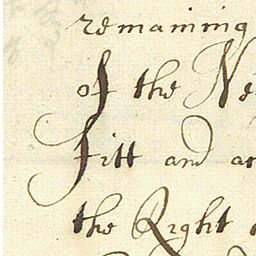 remaining
of the Ne
fitt and ac
the Right